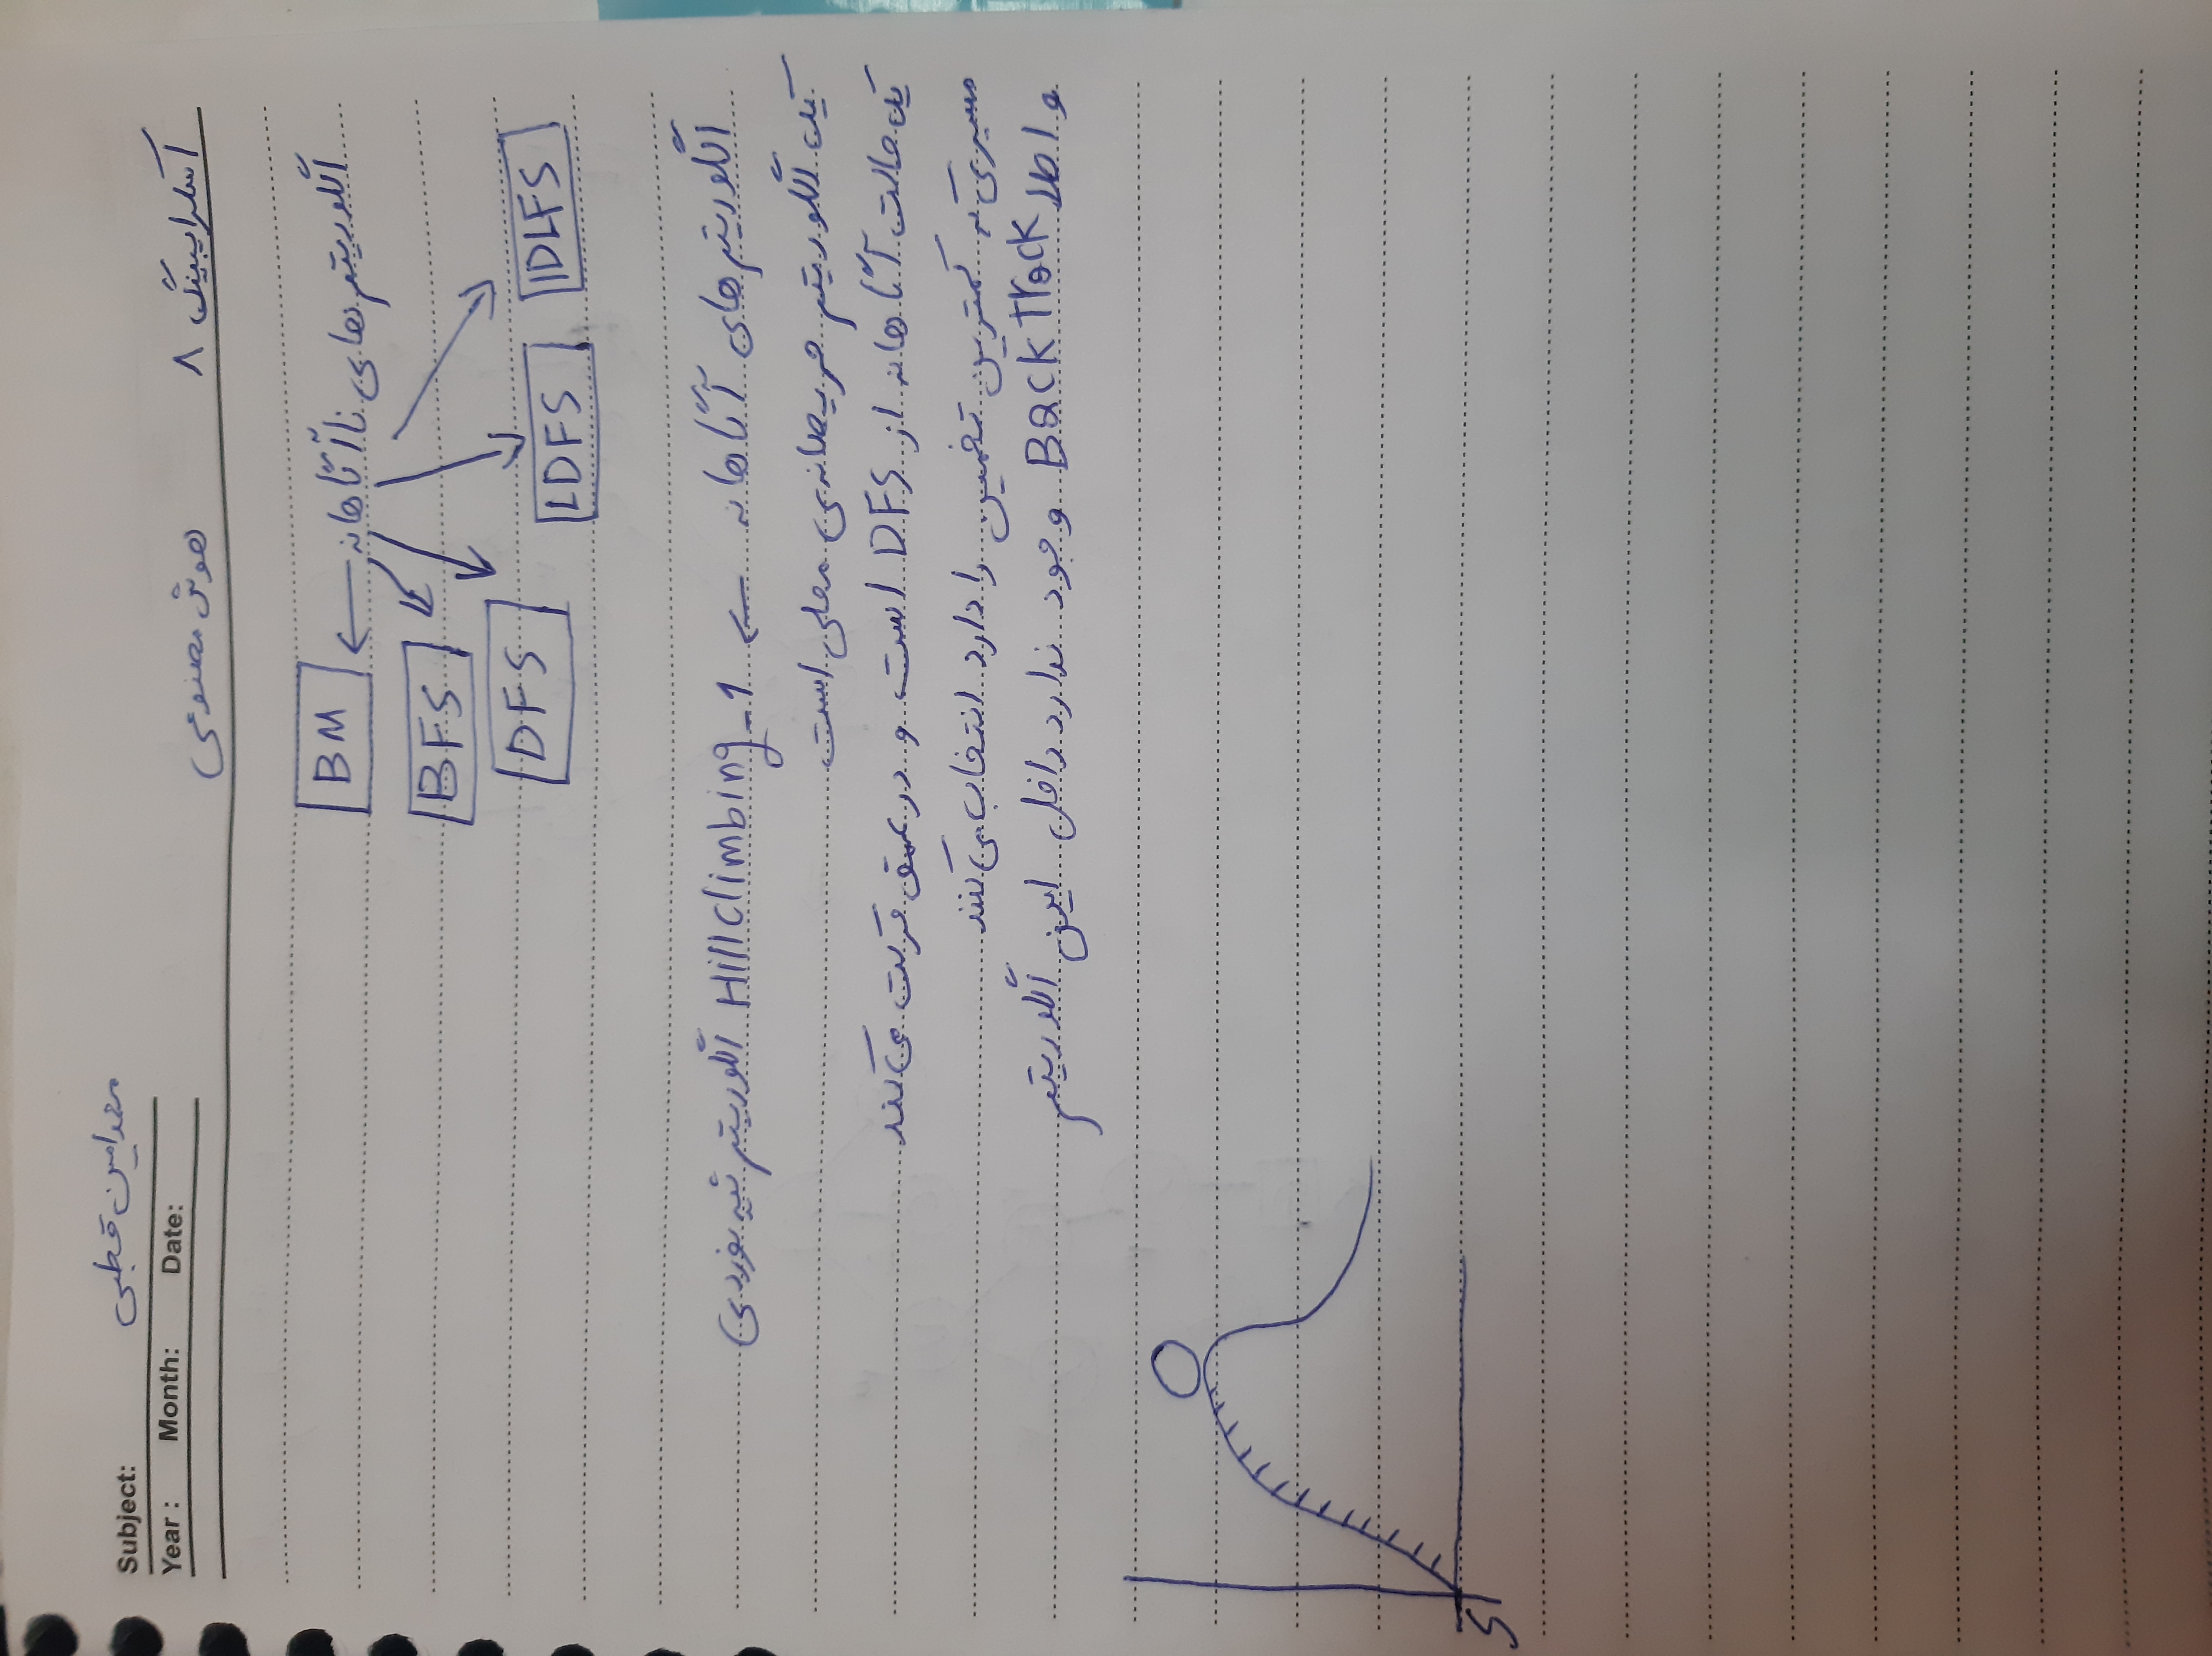 Subject: محمدامین قطبی
Year : Month: Date:
اسکرایبینگ ۸ هوش مصنوعی
الگوریتم های ناآگاهانه ← BM
BFS
DFS
LDFS
IDLFS
الگوریتم های آگاهانه ← 1- Hill climbing الگوریتم تپه نوردی
یک الگوریتم حریصانه ی محلی است
یک حالت آگاهانه از DFS است و در عمق حرکت می کند
مسیری که کمترین تخمین را دارد انتخاب می کنند
و اصلا Back Track وجود ندارد داخل این الگوریتم
S